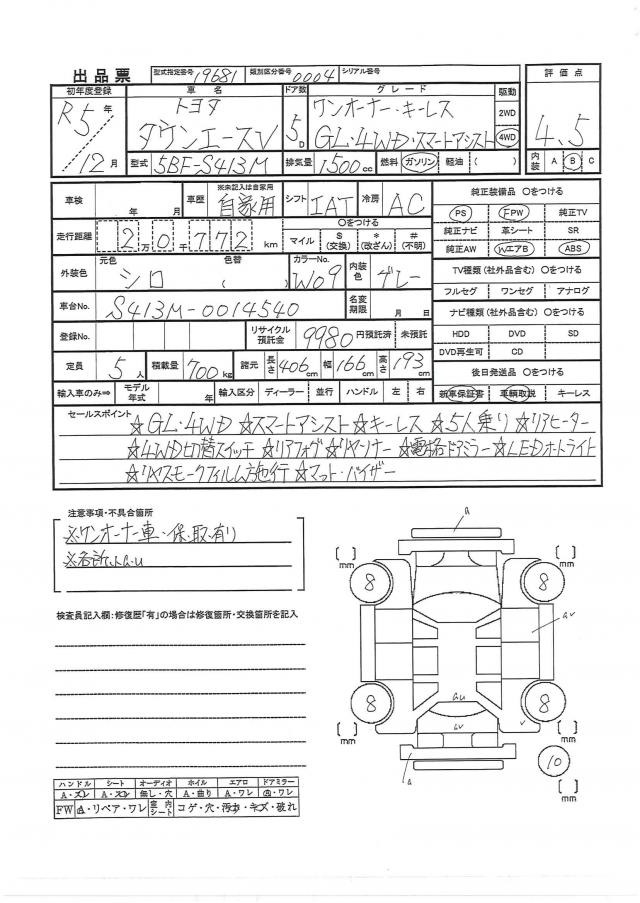 出品票 型式指定番号 19681 類別区分番号 0004 シリアル番号
初年度登録 車名 ドア数 グレード 駆動 評価点
R5年 12月 トヨタ タウンエースV 5D ワンオーナー・キーレス GL・4WD・スマートアシスト 2WD 4WD 4.5
型式 5BF-S413M 排気量 1500cc 燃料 ガソリン 軽油 ( ) 内装 A B C
車検 年 月 車歴 ※未記入は自家用 自家用 シフト IAT 冷房 AC
純正装備品 〇をつける
走行距離 2万0千772km 〇をつける マイル $(交換) *(改ざん) #(不明)
PS PW 純正TV
純正ナビ 革シート SR
純正AW エアB ABS
外装色 元色 シロ 色替 ( ) カラーNo. W09 内装色 グレー
TV種類(社外品含む) 〇をつける
フルセグ ワンセグ アナログ
車台No. S413M-0014540 名変期限 月 日
ナビ種類(社外品含む) 〇をつける
登録No. リサイクル預託金 9980円預託済 未預託
HDD DVD SD
DVD再生可 CD
定員 5人 積載量 700kg 諸元 長さ406cm 幅166cm 高さ193cm
後日発送品 〇をつける
輸入車のみ⇒ モデル年式 年 輸入区分 ディーラー 並行 ハンドル 左 右
新車保証書 車輌取説 キーレス
セールスポイント
☆GL・4WD ☆スマートアシスト ☆キーレス ☆5人乗り ☆リアヒーター
☆4WD切替スイッチ ☆リアフォグ ☆電格ドアミラー ☆LEDオートライト
☆リヤスモークフィルム施行 ☆マット・バイザー
注意事項・不具合箇所
※ワンオーナー車・保・取・有り
※各所
検査員記入欄:修復歴「有」の場合は修復箇所・交換箇所を記入
a
[ ] mm [ ] mm
8 8
av
8 8
au
av v
[ ] mm [ ] mm
a
10
[ ] mm
ハンドル シート オーディオ ホイル エアロ ドアミラー
A・スレ A・スレ 無し・穴 A・曲り A・ワレ A・ワレ
FW A・リペア・ワレ 室内シート コゲ・穴・汚れ・キズ・破れ